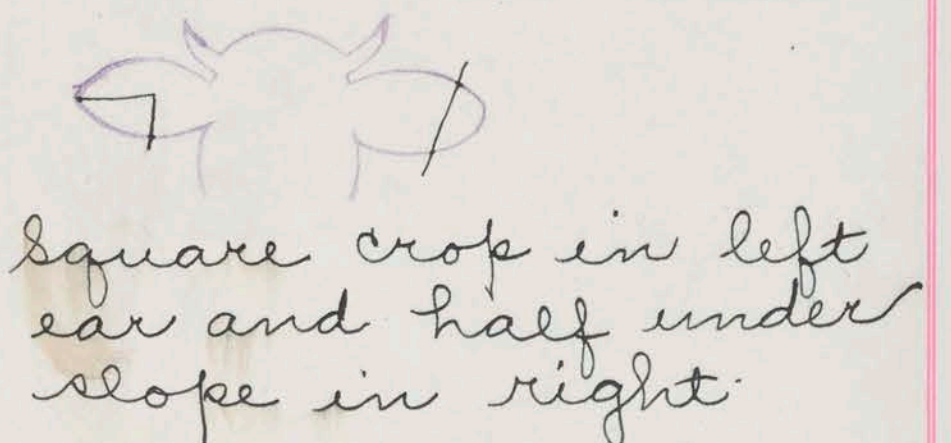 Square crop in left
ear and half under
slope in right.